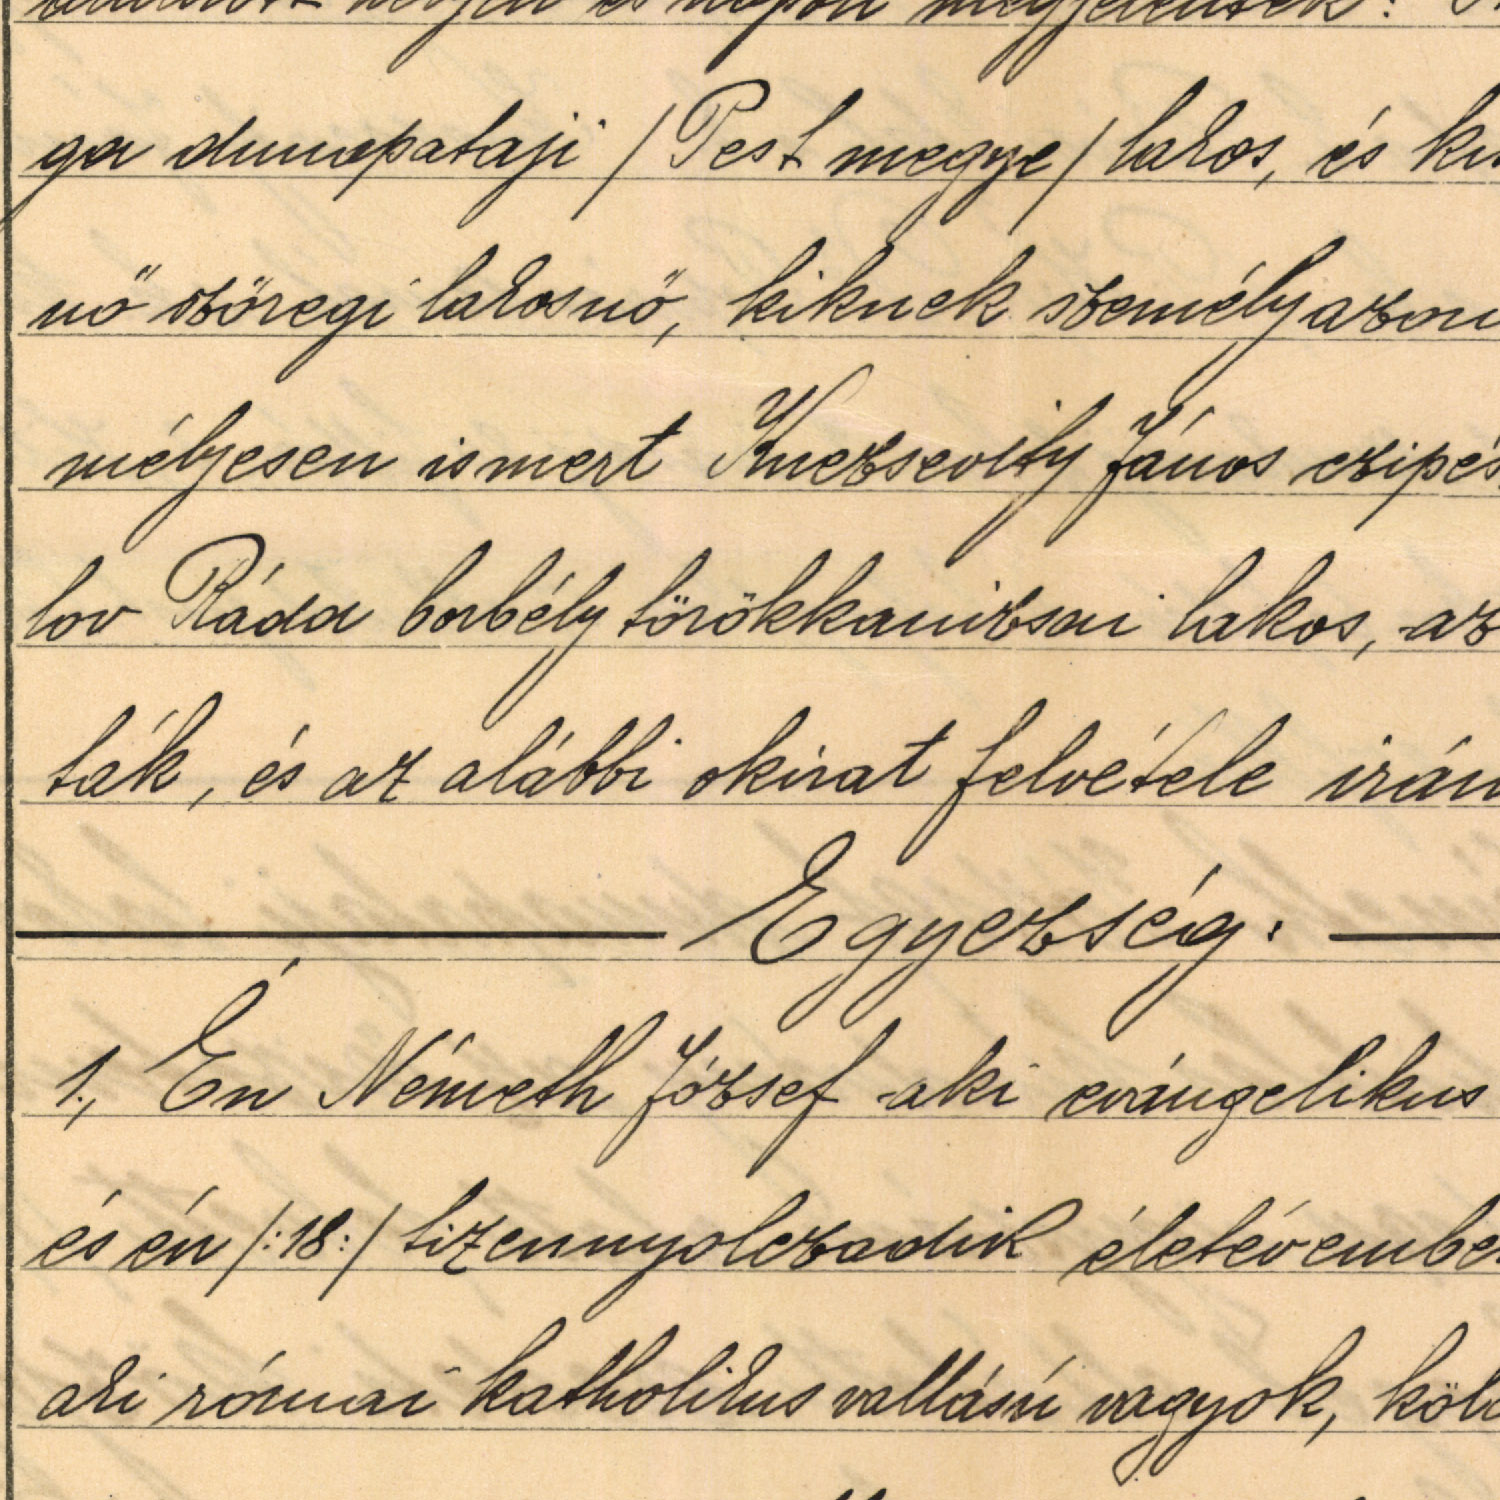 helyen és napon megjelentek:
ga dunapataji /Pest megye/ lakos, és
nő szőregi lakosnő, kiknek személyazon
mélyesen ismert Knezsevity János czipés
lov Ráda borbély törökkanizsai lakos, az
ták, és az alábbi okirat felvétele irán
Egyezség:
1., Én Németh József aki evángelikus
és én /:18:/ tizennyolczadik életévembe
aki római katholikus vallású vagyok, köl